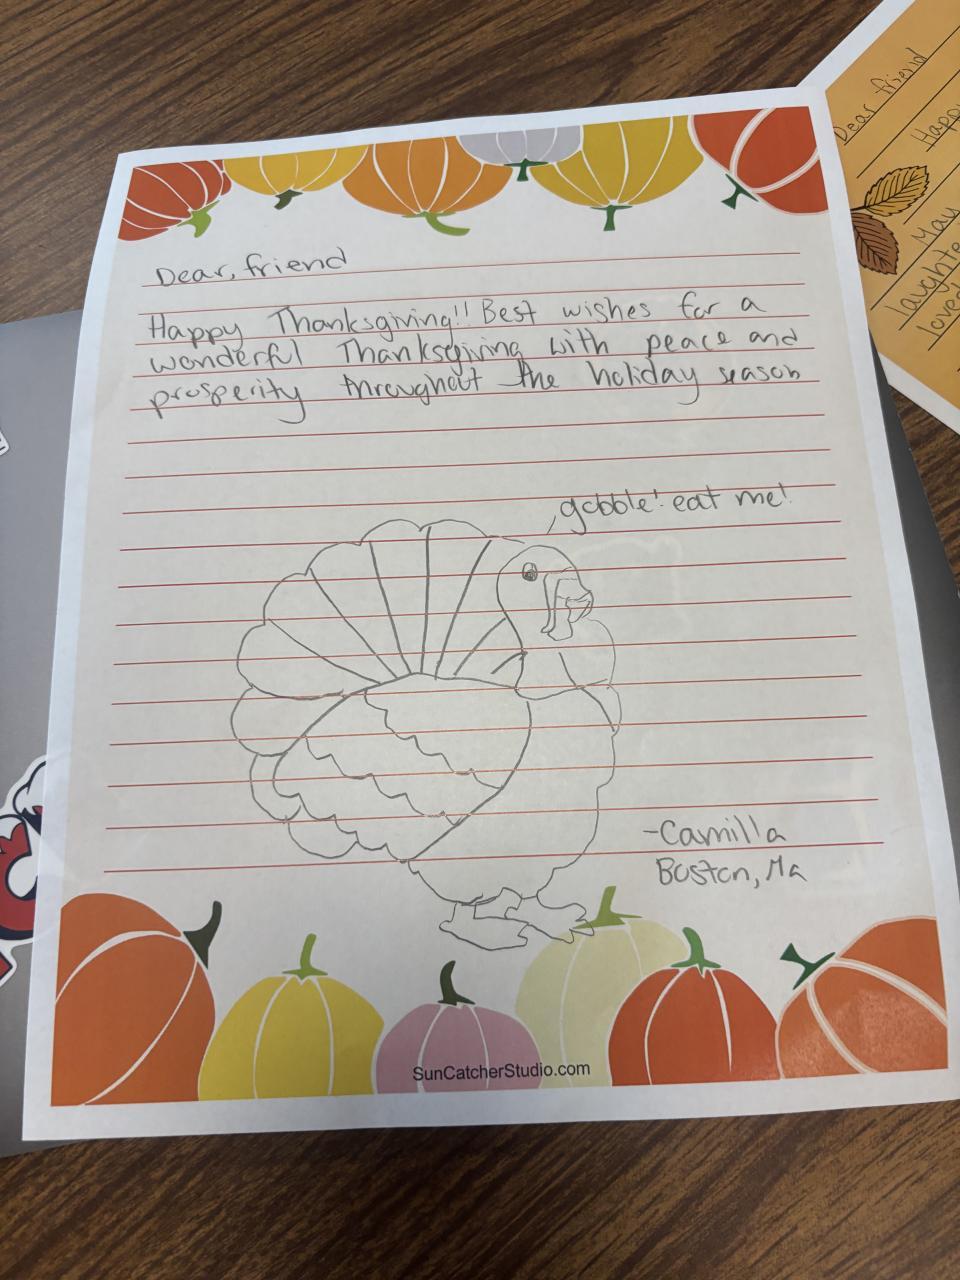 Dear, friend
Happy Thanksgiving!! Best wishes for a
wonderful Thanksgiving with peace and
prosperity throughout the holiday season
gobble! eat me!
-Camilla
Boston, Ma
SunCatcherStudio.com
Dear friend
Happy
May
laughte
loved